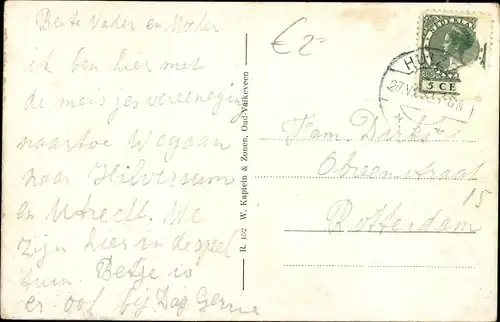 Beste Vader en Moeder
ik ben hier met
de meisjes vereeniging
naartoe We gaan
naar Hilversum
en Utrecht. We
zijn hier in de speel
tuin. Betje is
er ook bij Dag Gerrie
€ 2-
R. 192 W. Kaptein & Zonen, Oud-Valkeveen
5 CE
27.V
Fam Dirks
straat
15
Rotterdam